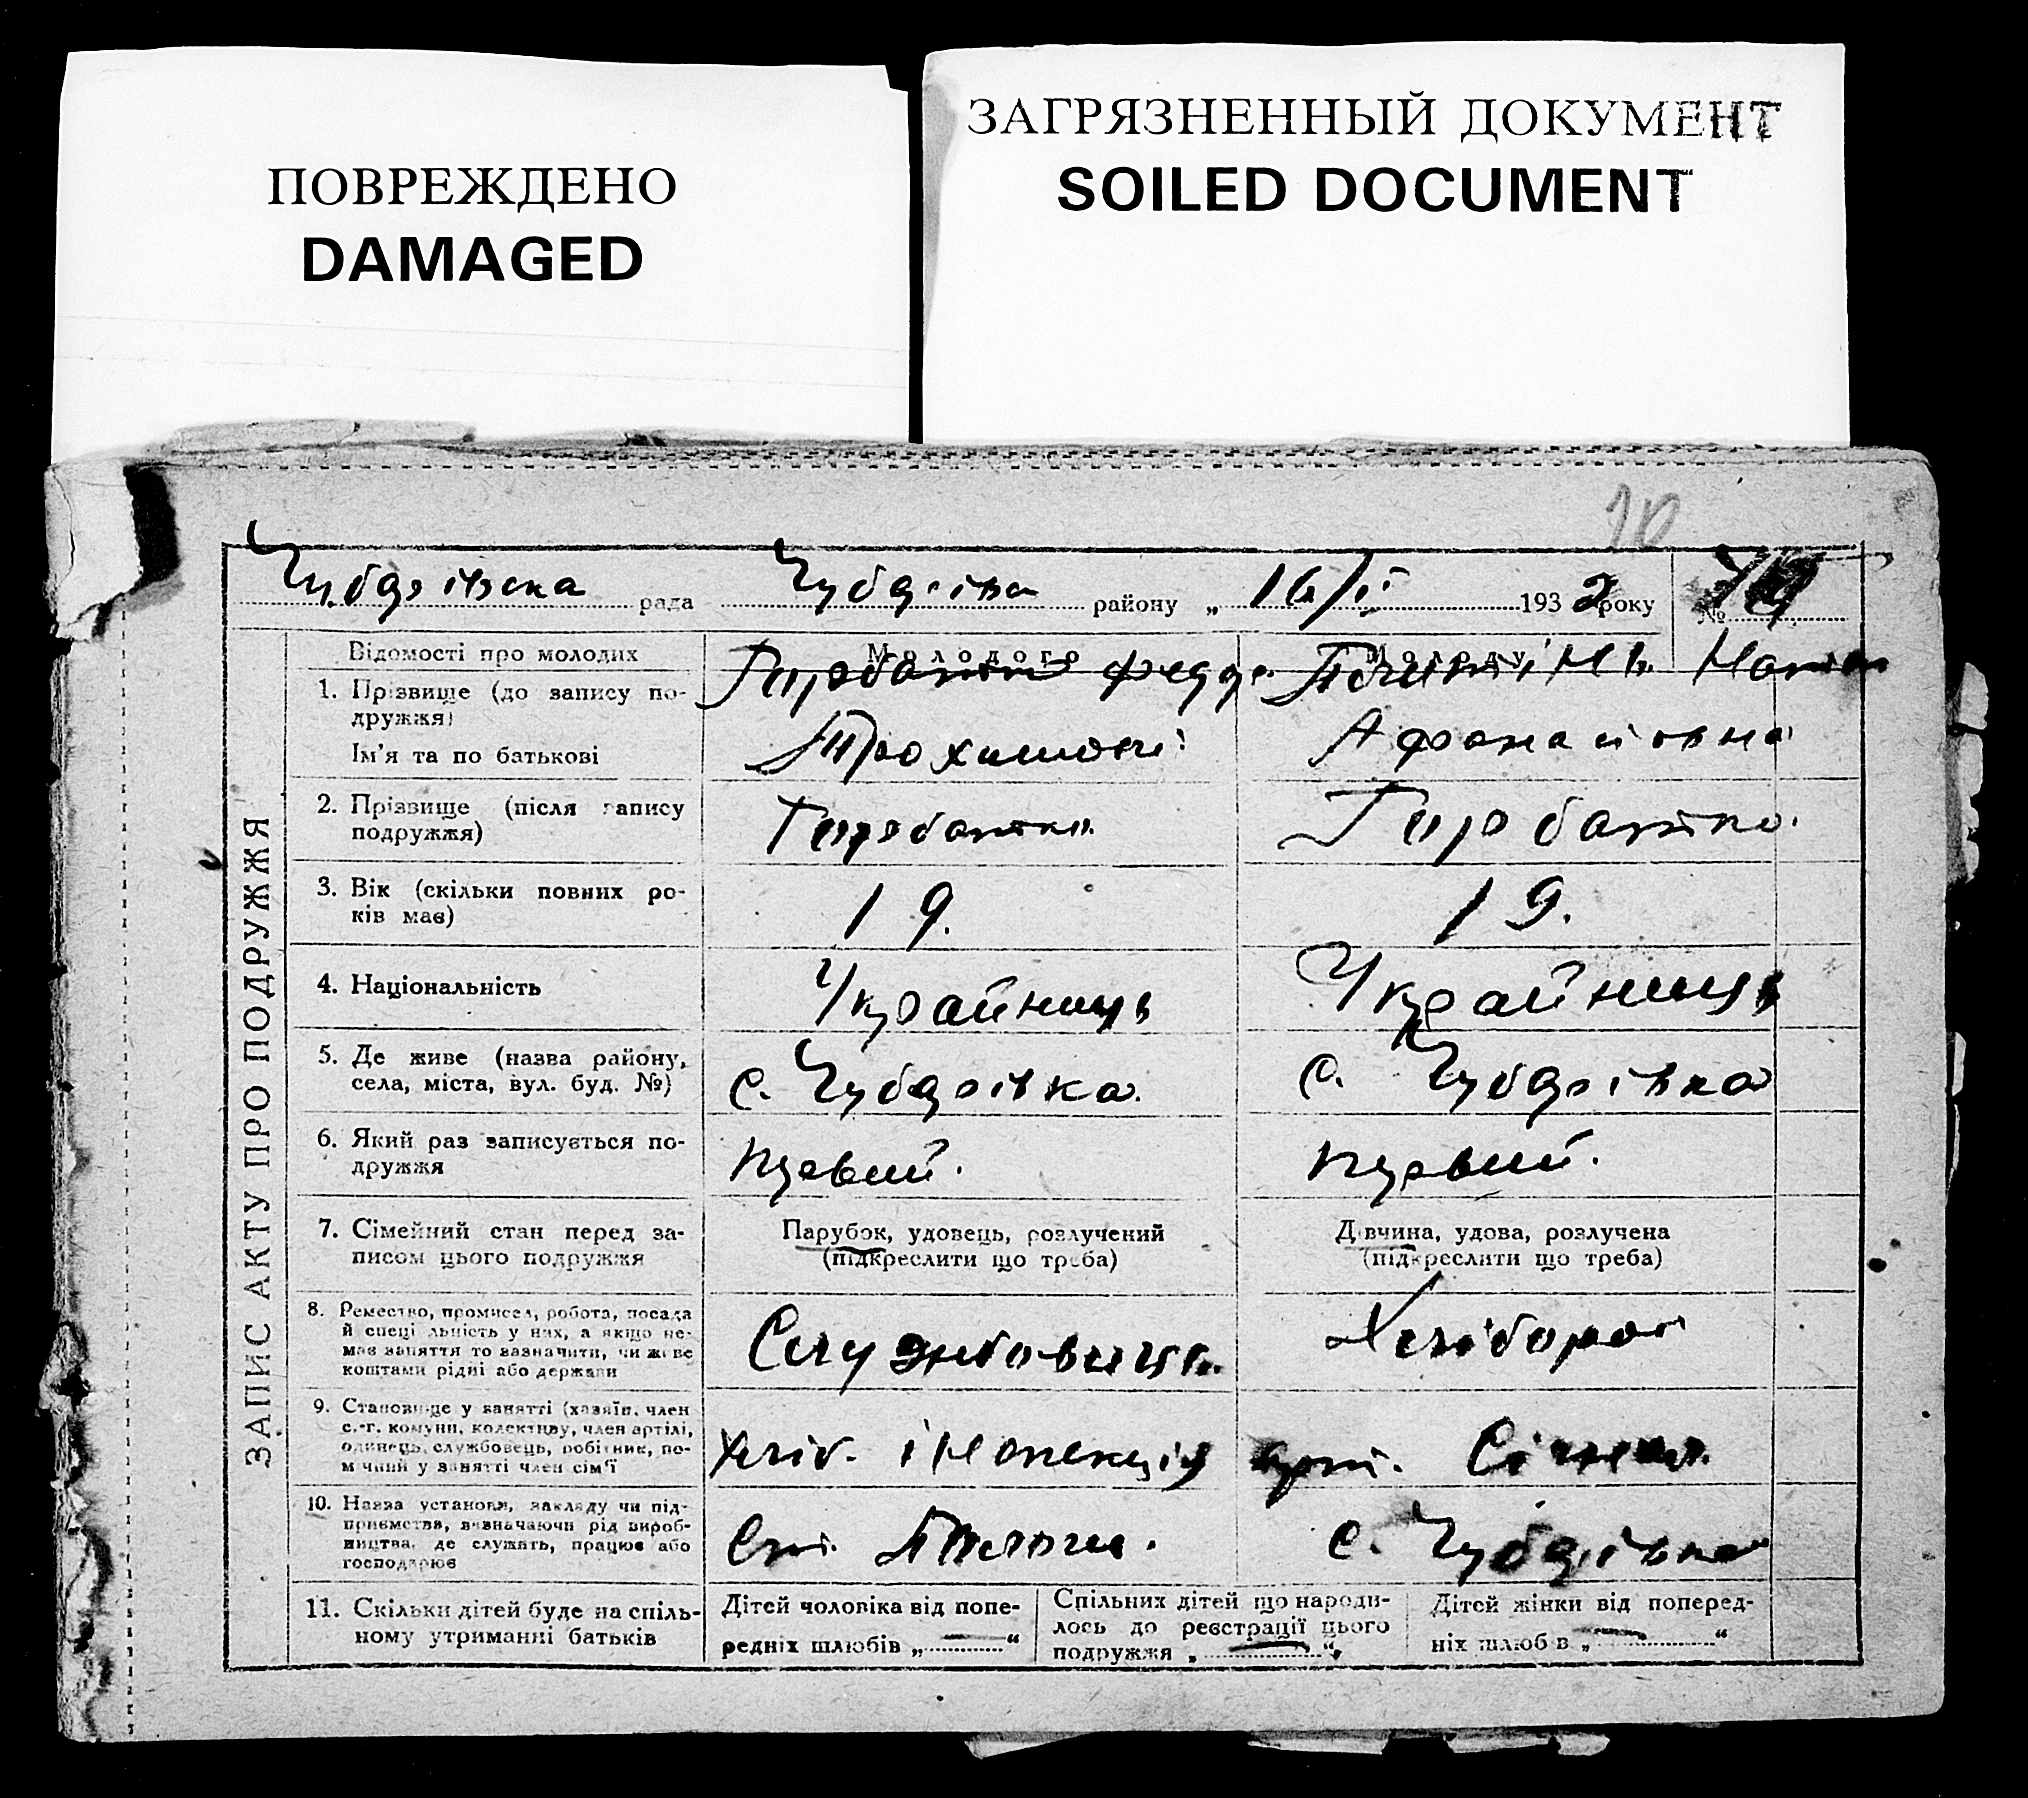 ПОВРЕЖДЕНО
DAMAGED
ЗАГРЯЗНЕННЫЙ ДОКУМЕНТ
SOILED DOCUMENT
10
Чубарівска рада Чубарівск району „ 16/I 1932 року №
ЗАПИС АКТУ ПРО ПОДРУЖЖЯ
Відомості про молодих
Молодого
Молодуї
1. Прізвище (до запису по-
дружжя)
Ім'я та по батькові
Горобантко Федор
Трохимович
Афонасіовна
2. Прізвище (після запису
подружжя)
Горобантко
Горобантко
3. Вік (скільки повних ро-
ків має)
19.
19.
4. Національність
Украйниць
Украйниць
5. Де живе (назва району,
села, міста, вул. буд. №)
с. Чубарівка
с. Чубарівка
6. Який раз записується по-
дружжя
первий.
первий.
7. Сімейний стан перед за-
писом цього подружжя
Парубок, удовець, розлучений
(підкреслити що треба)
Дівчина, удова, розлучена
(підкреслити що треба)
8. Ремество, промисел, робота, посада
й спеціальність у них, а якщо не-
має заняття то зазначити, чи живе
коштами рідні або держави
Службовиць
Хлібороб
9. Становище у занятті (хазяїн, член
с.-г. комуни, колективу, член артілі,
одинець, службовець, робітник, по-
мічний у занятті член сім'ї
хліб. інспекція
арт.
10. Назва установи, закладу чи під-
приємства, зазначаючи рід вироб-
ництва, де служить, працює або
господарює
Ст.
с. Чубарівка
11. Скільки дітей буде на спіль-
ному утриманні батьків
Дітей чоловіка від попе-
редніх шлюбів „ — “
Спільних дітей що народи-
лось до реєстрації цього
подружжя „ — “
Дітей жінки від поперед-
ніх шлюбів „ — “